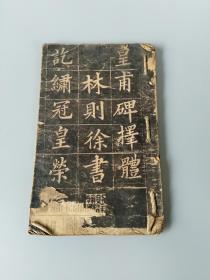 皇甫碑擇體
林則徐書
訖繡冠皇榮